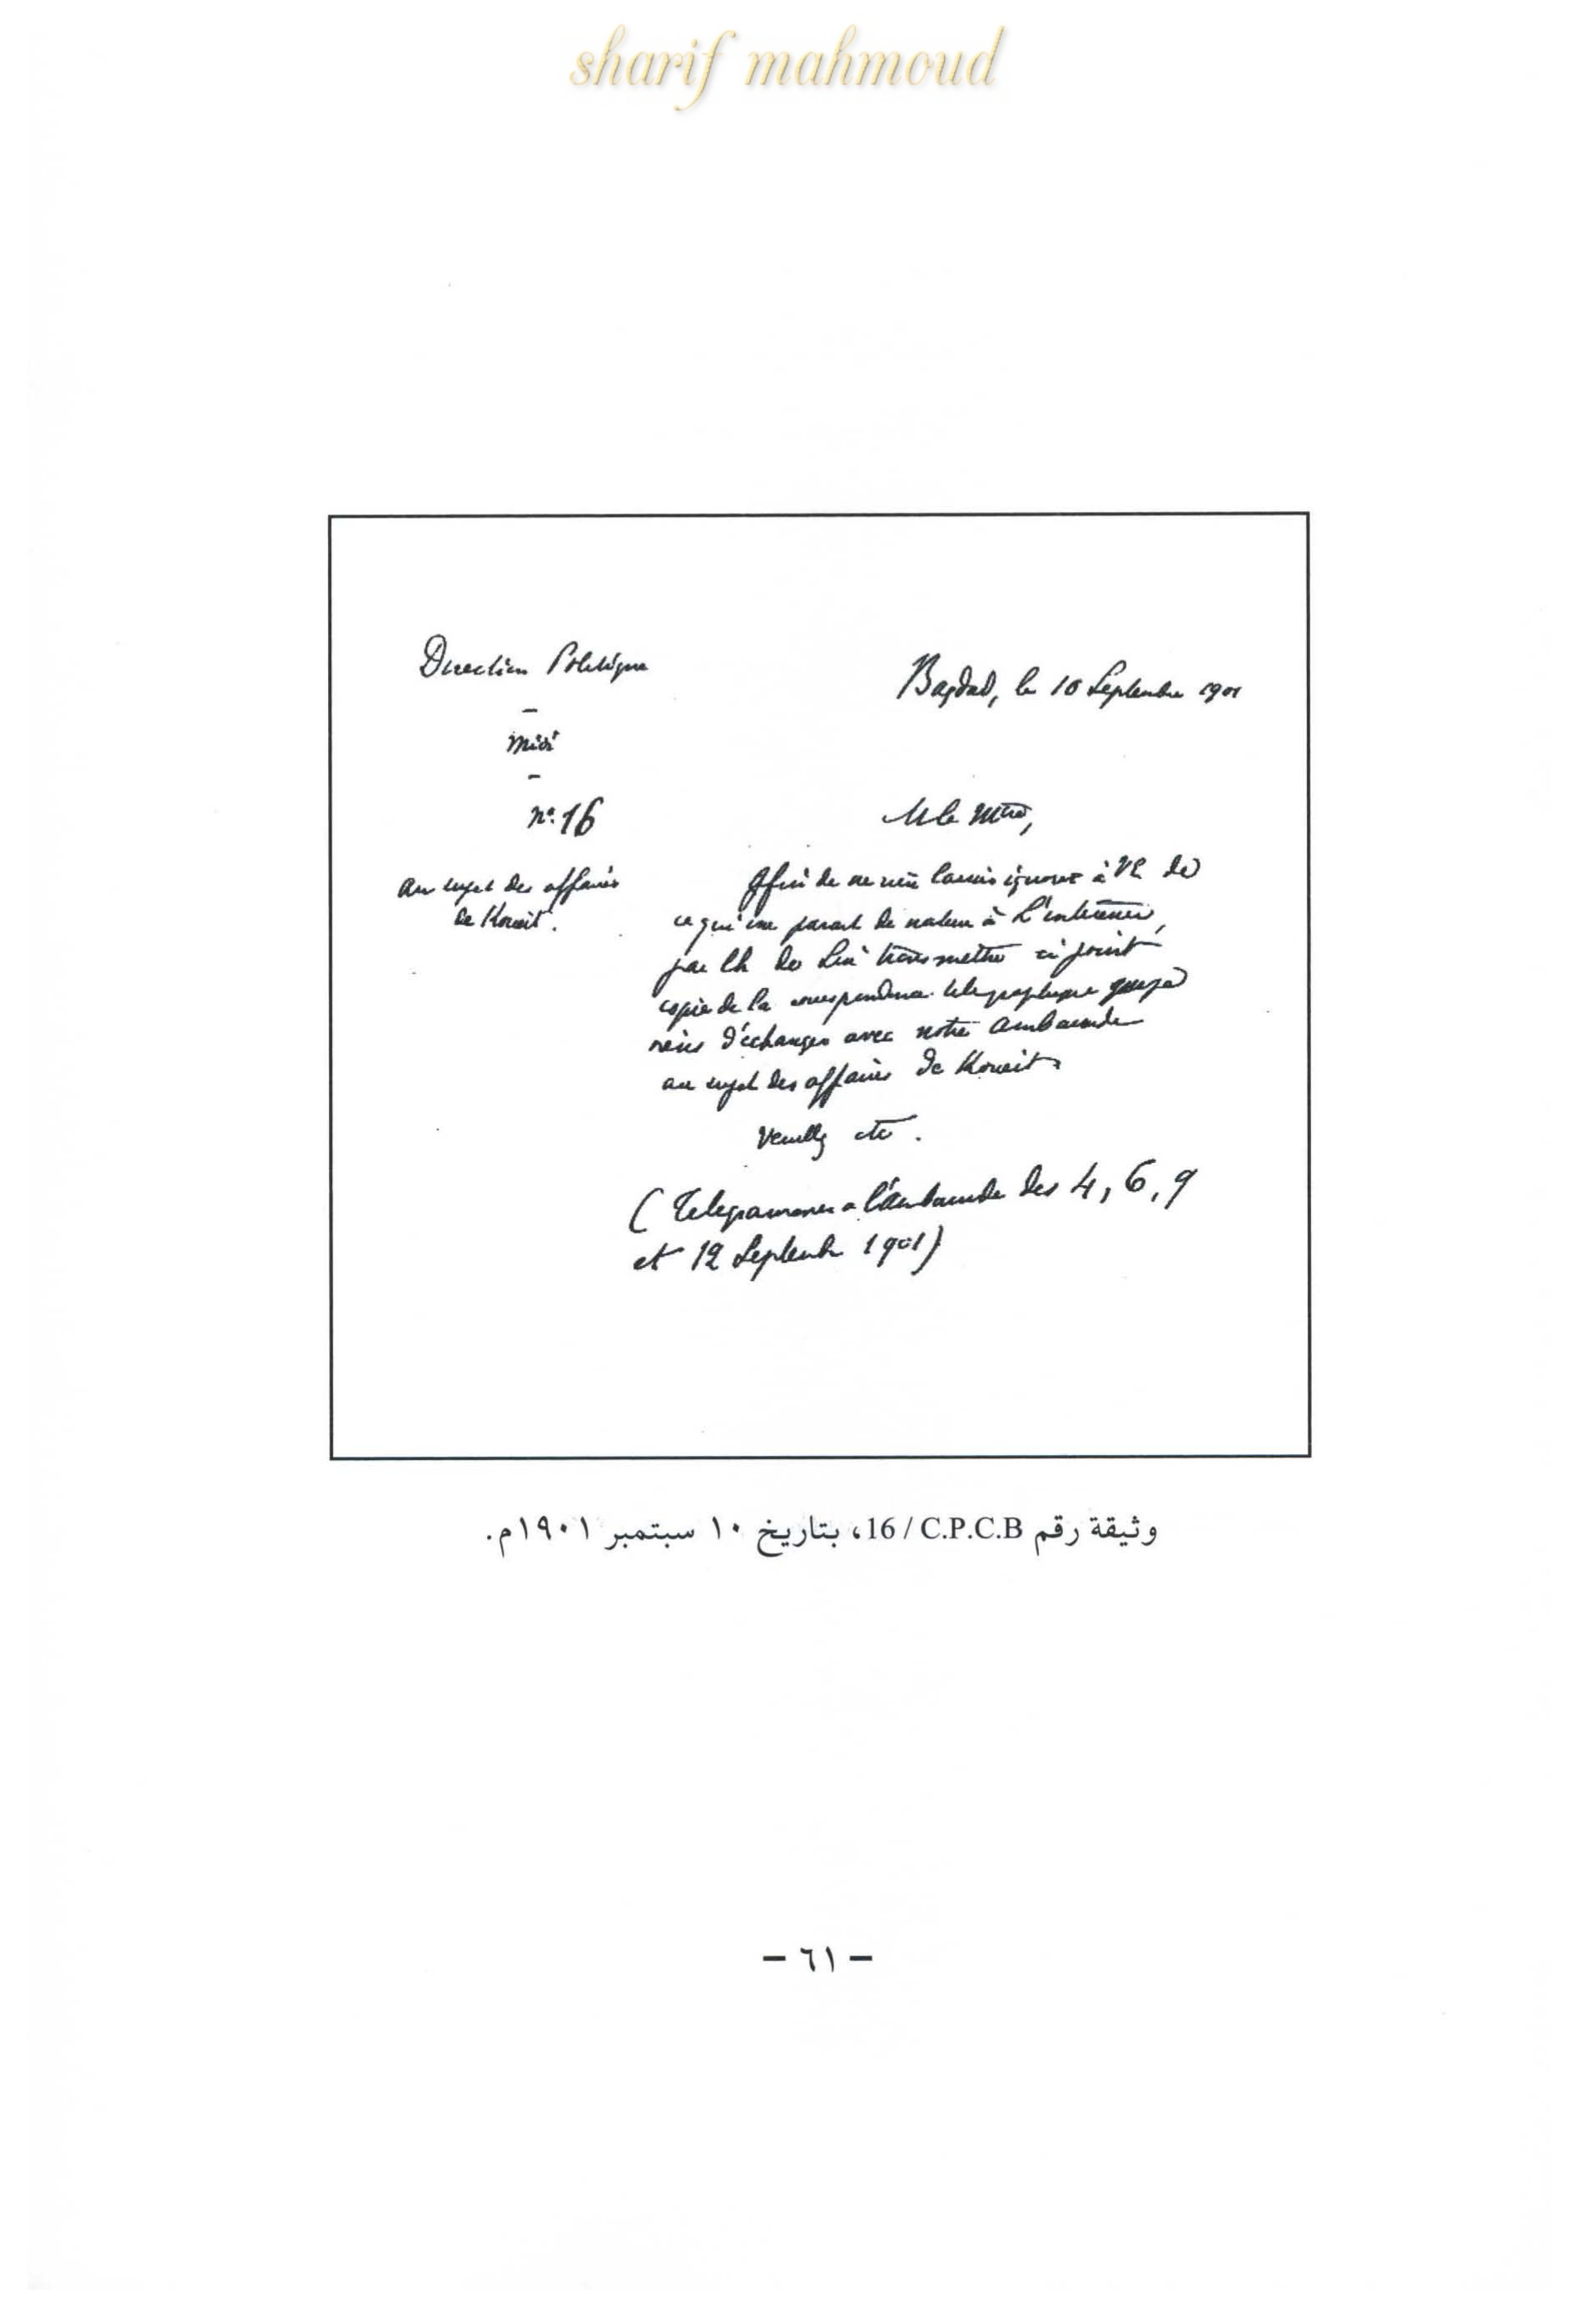 sharif mahmoud
Direction Politique
Bagdad, le 10 Septembre 1901
–
Midi
–
n° 16
M le Mtre,
au sujet des affaires
de Koueit.
Afin de ne rien laisser ignorer à VE de
ce qui me parait de nature à L'intéresser,
j'ai l'h de Lui transmettre ci joint
copie de la correspondance télégraphique que je
viens d'échanger avec notre Ambassade
au sujet des affaires de Koueit.
Veuillez etc.
(Télégrammes à l'Ambassade des 4, 6, 9
et 12 Septembre 1901)
وثيقة رقم 16 / C.P.C.B، بتاريخ ١٠ سبتمبر ١٩٠١م.
– ٦١ –